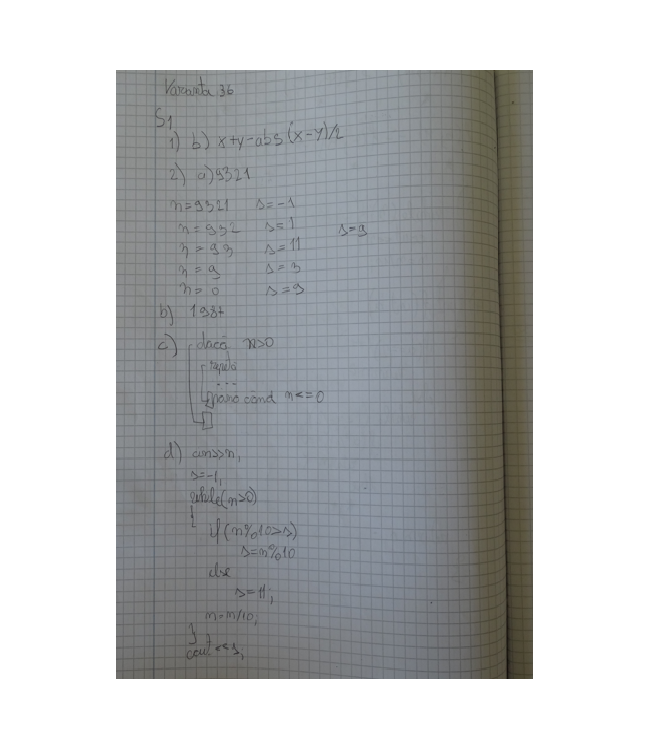 Varianta 36
S1
1) b) x+y-abs(x-y)/2
2) a) 9321
n=9321 s=-1
n=932 s=1 s=9
n=93 s=11
n=9 s=3
n=0 s=9
b) 1987
c) dacă n>0
repetă
...
până când n<=0
d) cin>>n;
s=-1;
while(n>0)
{
if(n%10>s)
s=n%10
else
s=11;
n=n/10;
}
cout<<s;